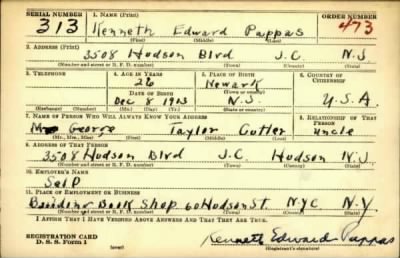 SERIAL NUMBER 1. NAME (Print) ORDER NUMBER
313 Kenneth Edward Pappas 473
(First) (Middle) (Last)
2. ADDRESS (Print)
3508 Hudson Blvd J.C. N.J.
(Number and street or R. F. D. number) (Town) (County) (State)
3. TELEPHONE 4. AGE IN YEARS 5. PLACE OF BIRTH 6. COUNTRY OF CITIZENSHIP
26 Newark
DATE OF BIRTH (Town or county)
Dec 8 1913 N.J. U.S.A.
(Exchange) (Number) (Mo.) (Day) (Yr.) (State or country)
7. NAME OF PERSON WHO WILL ALWAYS KNOW YOUR ADDRESS 8. RELATIONSHIP OF THAT PERSON
Mr George Taylor Cutler Uncle
(Mr., Mrs., Miss) (First) (Middle) (Last)
9. ADDRESS OF THAT PERSON
3508 Hudson Blvd J.C. Hudson N.J.
(Number and street or R. F. D. number) (Town) (County) (State)
10. EMPLOYER'S NAME
Self
11. PLACE OF EMPLOYMENT OR BUSINESS
Book Shop 60 Hudson St. NYC N.Y.
(Number and street or R. F. D. number) (Town) (County) (State)
I AFFIRM THAT I HAVE VERIFIED ABOVE ANSWERS AND THAT THEY ARE TRUE.
REGISTRATION CARD
D. S. S. Form 1 Kenneth Edward Pappas
(Registrant's signature)